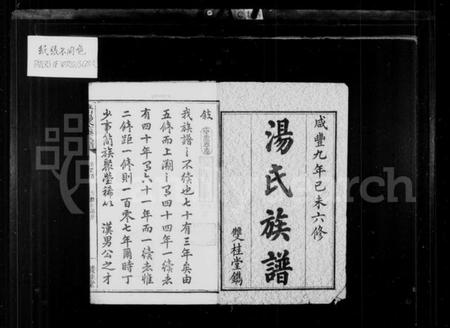 紙張不同色
PAPERS OF VARIOUS COLOR
咸豐九年己未六修
湯氏族譜
雙桂堂鐫
敘
我族譜之不續也七十有三年矣由
五修而上溯之有四十四年一續者
有四十年有六十一年而一續者惟
二修距一修則一百零七年爾時丁
少事簡族聚塋稀以漢男公之才